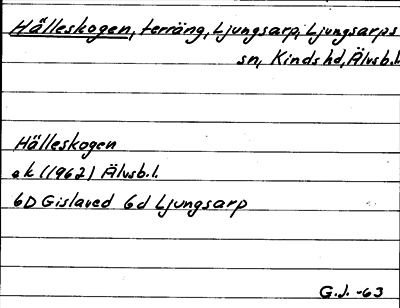 Hälleskogen, terräng, Ljungsarp, Ljungsarps
sn, Kinds hd, Älvsb.l.
Hälleskogen
ek (1962) Älvsb.l.
6D Gislaved 6d Ljungsarp
G.J. -63